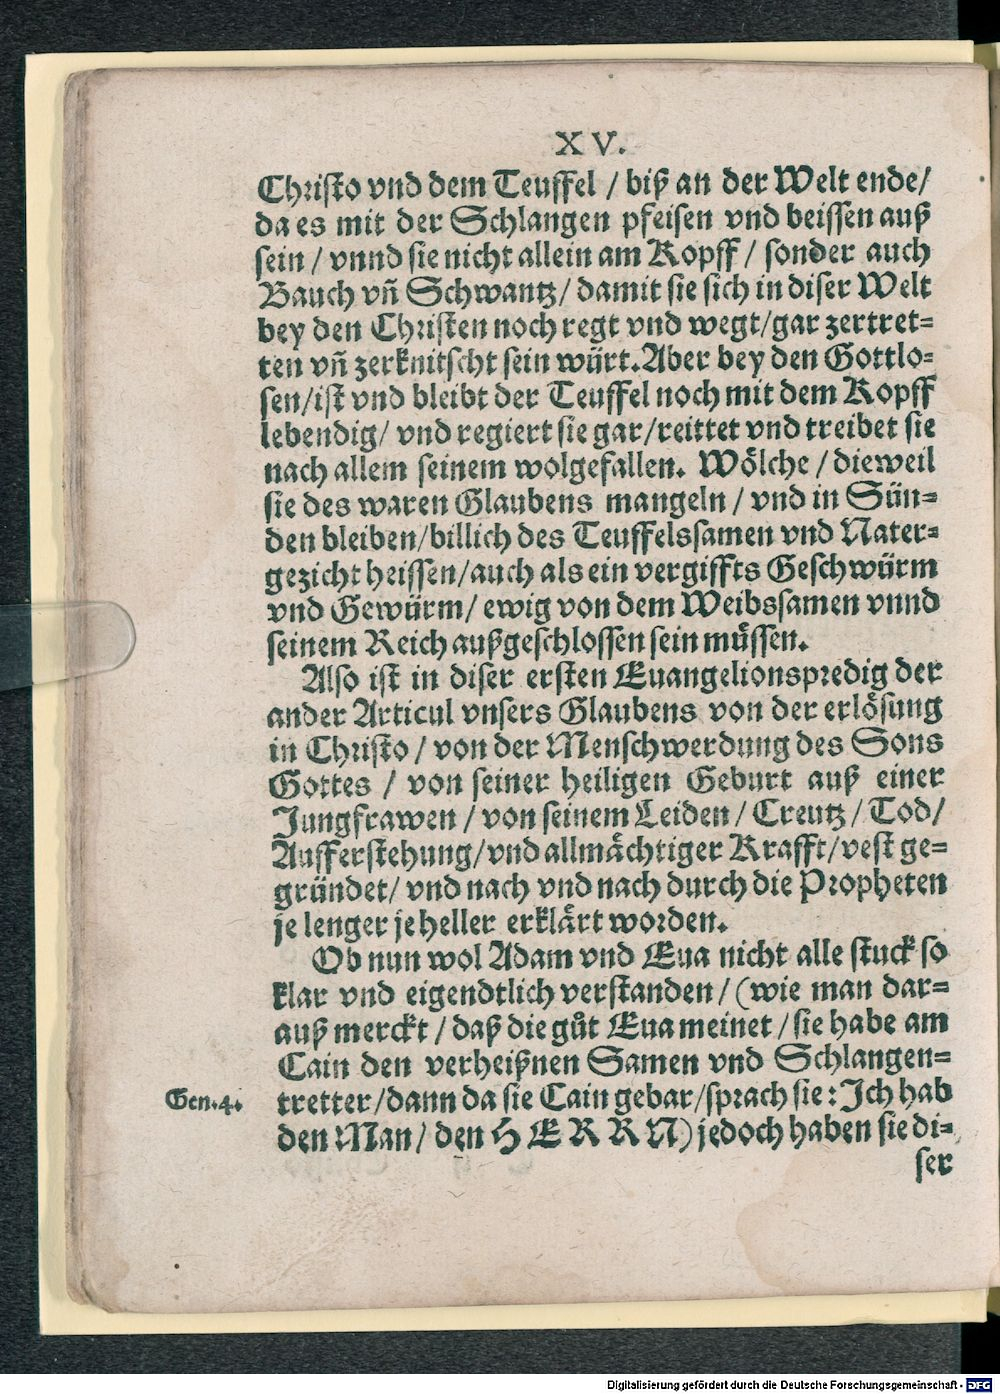 XV.
Christo vnd dem Teuffel / biß an der Welt ende/
da es mit der Schlangen pfeisen vnd beissen auß
sein / vnnd sie nicht allein am Kopff / sonder auch
Bauch vñ Schwantz/ damit sie sich in diser Welt
bey den Christen noch regt vnd wegt/gar zertret=
ten vñ zerknitscht sein würt. Aber bey den Gottlo=
sen/ist vnd bleibt der Teuffel noch mit dem Kopff
lebendig/ vnd regiert sie gar/reittet vnd treibet sie
nach allem seinem wolgefallen. Wölche / dieweil
sie des waren Glaubens mangeln / vnd in Sün=
den bleiben/billich des Teuffelssamen vnd Nater=
gezicht heissen/auch als ein vergiffts Geschwürm
vnd Gewürm/ ewig von dem Weibssamen vnnd
seinem Reich außgeschlossen sein müssen.
Also ist in diser ersten Euangelionspredig der
ander Articul vnsers Glaubens von der erlösung
in Christo / von der Menschwerdung des Sons
Gottes / von seiner heiligen Geburt auß einer
Jungfrawen / von seinem Leiden / Creutz / Tod/
Aufferstehung/vnd allmächtiger Krafft/vest ge=
gründet/ vnd nach vnd nach durch die Propheten
je lenger je heller erklärt worden.
Ob nun wol Adam vnd Eua nicht alle stuck so
klar vnd eigendtlich verstanden / (wie man dar=
auß merckt / daß die gůt Eua meinet / sie habe am
Cain den verheißnen Samen vnd Schlangen=
Gen.4. tretter/dann da sie Cain gebar/sprach sie: Ich hab
den Man/ den HERRN) jedoch haben sie di=
ser
Digitalisierung gefördert durch die Deutsche Forschungsgemeinschaft - DFG